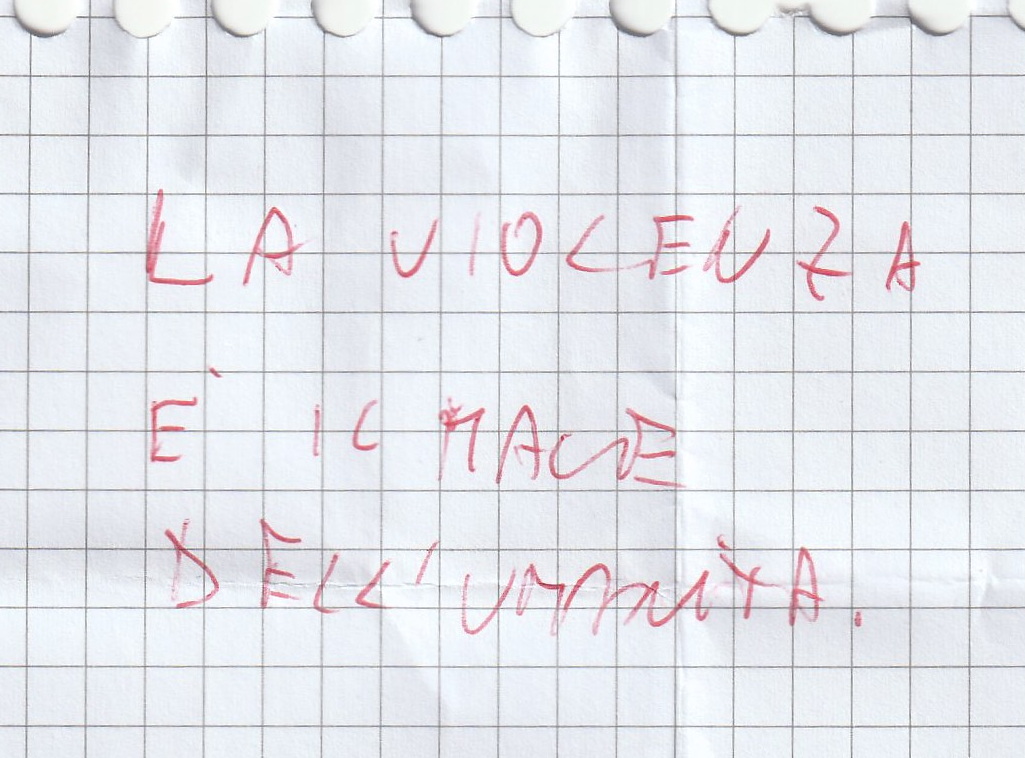 LA VIOLENZA
E' IL MALE
DELL'UMANITA.